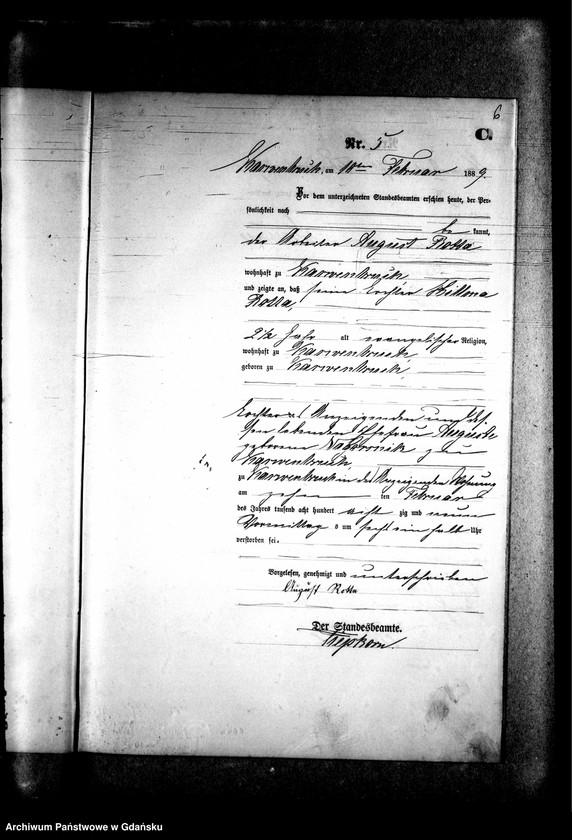 6
C.
Nr. 5
Karwenbruch, am 11ten Februar 1889.
Vor dem unterzeichneten Standesbeamten erschien heute, der Per-
sönlichkeit nach
be kannt,
der Arbeiter August Rotta
wohnhaft zu Karwenbruch
und zeigte an, daß seine Tochter
Rotta,
2½ Jahr alt evangelischer Religion,
wohnhaft zu Karwenbruch,
geboren zu Karwenbruch,
Tochter des Anzeigenden und des
sen lebenden Ehefrau Auguste
geborene zu
Karwenbruch,
zu Karwenbruch in des Anzeigenden Wohnung
am zehen ten Februar
des Jahres tausend acht hundert acht zig und neun
Vormittag s um sechs ein halb Uhr
verstorben sei.
Vorgelesen, genehmigt und unterschrieben
August Rotta
Der Standesbeamte.
Archiwum Państwowe w Gdańsku